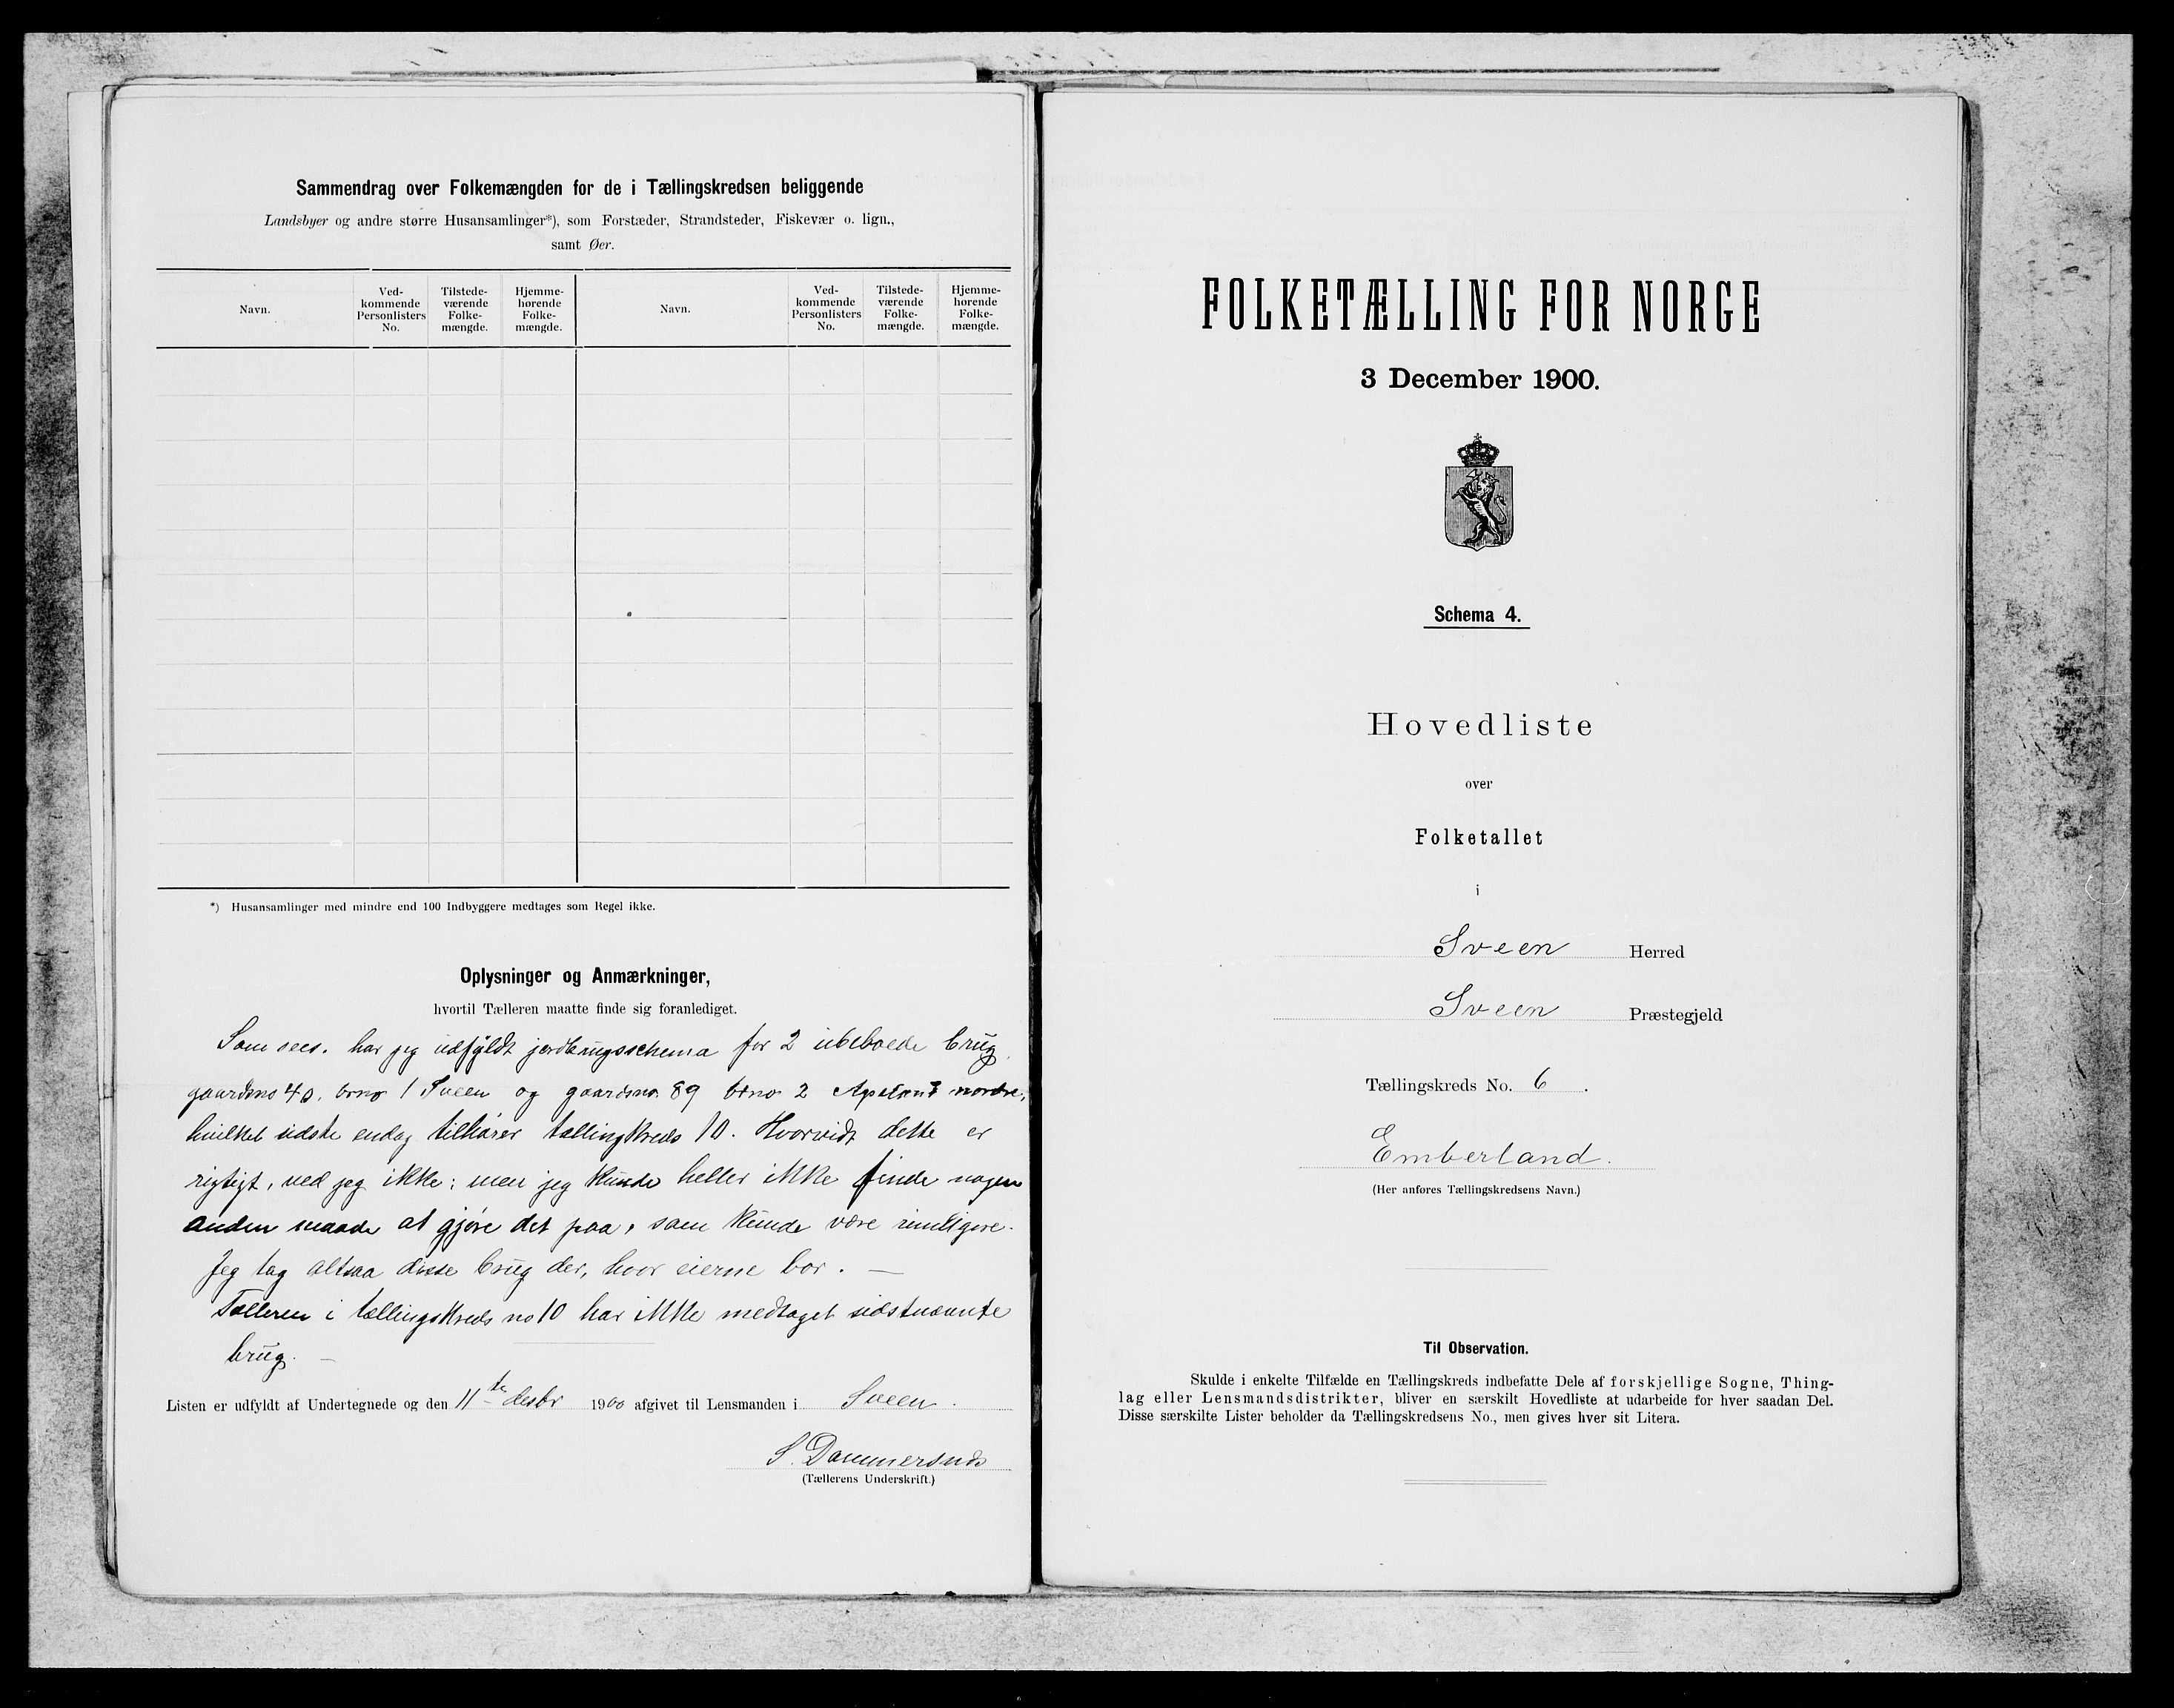 Sammendrag over Folkemængden for de i Tællingskredsen beliggende
Landsbyer og andre større Husansamlinger*), som Forstæder, Strandsteder, Fiskevær o. lign.,
samt Øer.
Navn. Ved- kommende Personlisters No. Tilstede- værende Folke- mængde. Hjemme- hørende Folke- mængde. Navn. Ved- kommende Personlisters No. Tilstede- værende Folke- mængde. Hjemme- hørende Folke- mængde.
*) Husansamlinger med mindre end 100 Indbyggere medtages som Regel ikke.
Oplysninger og Anmærkninger,
hvortil Tælleren maatte finde sig foranlediget.
Som sees. har jeg udfyldt jordbrugsschema for 2 ubeboede brug
gaardsno 40. brno 1 Sveen og gaardsno 89 brno 2 nordre,
hvilket sidste endog tilhører tællingkreds 10. Hvorvidt dette er
rigtigt, ved jeg ikke; men jeg kunde heller ikke finde nogen
anden maade at gjøre det paa, som kunde være rimligere.
Jeg tog altsaa disse brug der, hvor eierne bor. —
Tælleren i tællingskreds no 10 har ikke medtaget sidstnævnte
brug. —
Listen er udfyldt af Undertegnede og den 11te desbr 1900 afgivet til Lensmanden i Sveen.
S.
(Tællerens Underskrift.)
FOLKETÆLLING FOR NORGE
3 December 1900.
Schema 4.
Hovedliste
over
Folketallet
i
Sveen Herred
Sveen Præstegjeld
Tællingskreds No. 6.
Emberland.
(Her anføres Tællingskredsens Navn.)
Til Observation.
Skulde i enkelte Tilfælde en Tællingskreds indbefatte Dele af forskjellige Sogne, Thing-
lag eller Lensmandsdistrikter, bliver en særskilt Hovedliste at udarbeide for hver saadan Del.
Disse særskilte Lister beholder da Tællingskredsens No., men gives hver sit Litera.